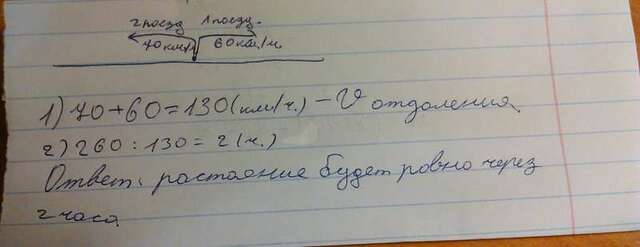 2 поезд 1 поезд.
70км/ч 60км/ч.
1) 70+60=130(км/ч.) - V отдоления
2) 260:130=2(ч.)
Ответ: растаение будет ровно через
2 часа